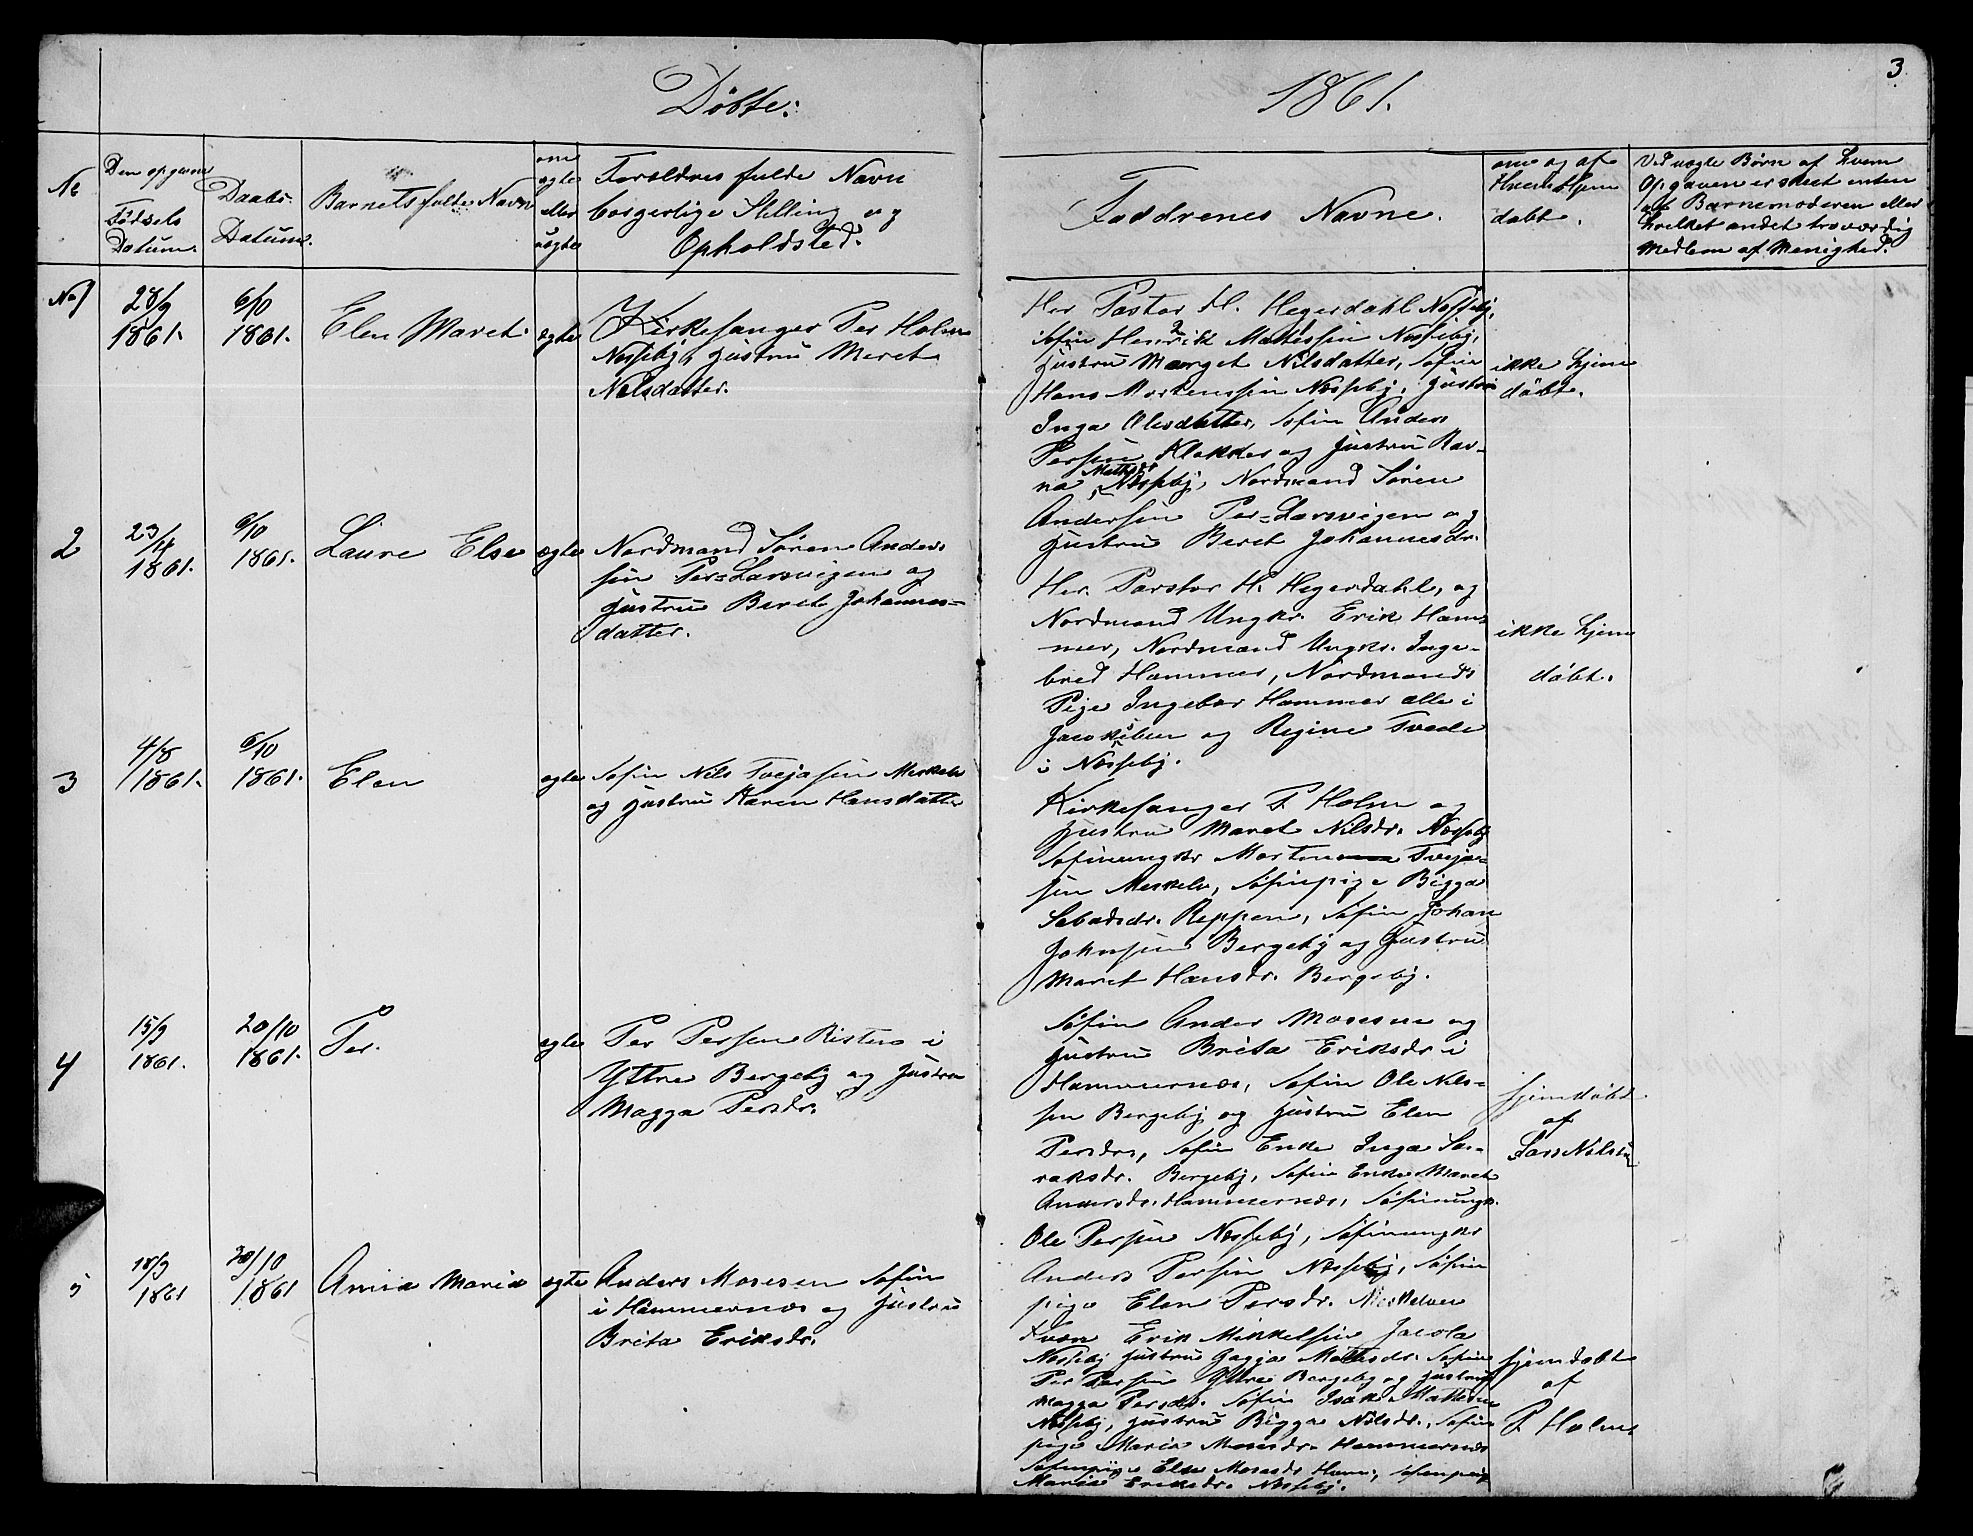 Døbte:
1861.
3.
No
Den opgivne
Fødsels
Datum.
Daabs-
Datum.
Barnets fulde Navn
om
ægte
eller
uægte
Forældres fulde Navn
borgerlige Stilling og
Opholdsted.
Faddrenes Navne.
om og af
Hvem hjem
døbt.
Ved uægte Børn af hvem
Opgaven er skeet enten
af Barnemoderen eller
hvilket andet troværdig
Medlem af Menighed.
No 1
28/9
1861.
6/10
1861.
Elen Maret
ægte
Kirkesanger Per Holm
Næsseby, Hustru Meret
Nilsdatter.
Her Pastor H. Hegerdahl Næsseby,
Søfin Henrik Mathissen Næsseby,
Hustru Marget Nilsdatter, Søfin
Hans Mortensen Næsseby, Hustru
Inga Olesdatter, Søfin Anders
Persen Klokker og Hustru Rav-
na Mathisd Næsseby, Nordmand Søren
Andersen Per-Larsvigen og
Hustru Beret Johannesdr.
ikke hjem
døbt.
2
23/4
1861.
6/10
1861.
Laure Else
ægte
Nordmand Søren Anders
sen Per-Larsvigen og
Hustru Beret Johannes-
datter.
Her. Parstor H. Hegerdahl, og
Nordmand Ungkr. Erik Ham-
mer, Nordmand Ungkr. Inge-
bred Hammer, Nordmands
Pige Ingebor Hammer alle i
Jacobsbun og Regine Tvede
i Næsseby.
ikke hjem
døbt.
3
4/8
1861.
6/10
1861.
Elen
ægte
Søfin Nils Tvejasen Meskelv
og Hustru Karen Hansdatter
Kirkesanger P. Holm og
Hustru Maret Nilsdr. Næsseby
Søfinungkr Morten Tveja-
sen Meskelv, Søfinpige Bigga
Sabasdr. Reppen, Søfin Johan
Johnsen Bergeby og Hustru
Maret Hansdr. Bergeby.
4
15/9
1861.
20/10
1861.
Per.
ægte
Per Persen Risten i
Yttre Bergeby og Hustru
Magga Persdr.
Søfin Ander Mosesen og
Hustru Brita Eriksdr i
Hammernæs, Søfin Ole Nils-
sen Bergeby og Hustru Elen
Persdr, Søfin Enke Inga Sa-
raksdr. Bergeby, Søfin Enke Maret
Andersdr. Hammernæs, Søfinungk.
Ole Persen Næsseby, Søfinungkr
Anders Persen Næsseby, Søfin
pige Elen Persdr. Meskelven
hjemdøbt
af
Lars Nilsen
5
18/9
1861
20/10
1861
Anna Maria
ægte
Anders Mosesen Søfin
i Hammernæs og Hustru
Brita Eriksdr.
Kvæn Erik Mikkelsen Jacola
Næsseby Hustru Gagga Mathisdr. Søfin
Per Persen Yttre Bergeby og Hustru
Magga Persdr. Søfin Isak Mathisen
Næsseby, Hustru Bigga Nilsdr., Søfin
pige Maria Mosesdr. Hammernæs
Søfinpige Else Mosesdr Ham., Søfinpige
Maria Eriksdr. Næsseby.
hjemdøbt
af
P. Holm